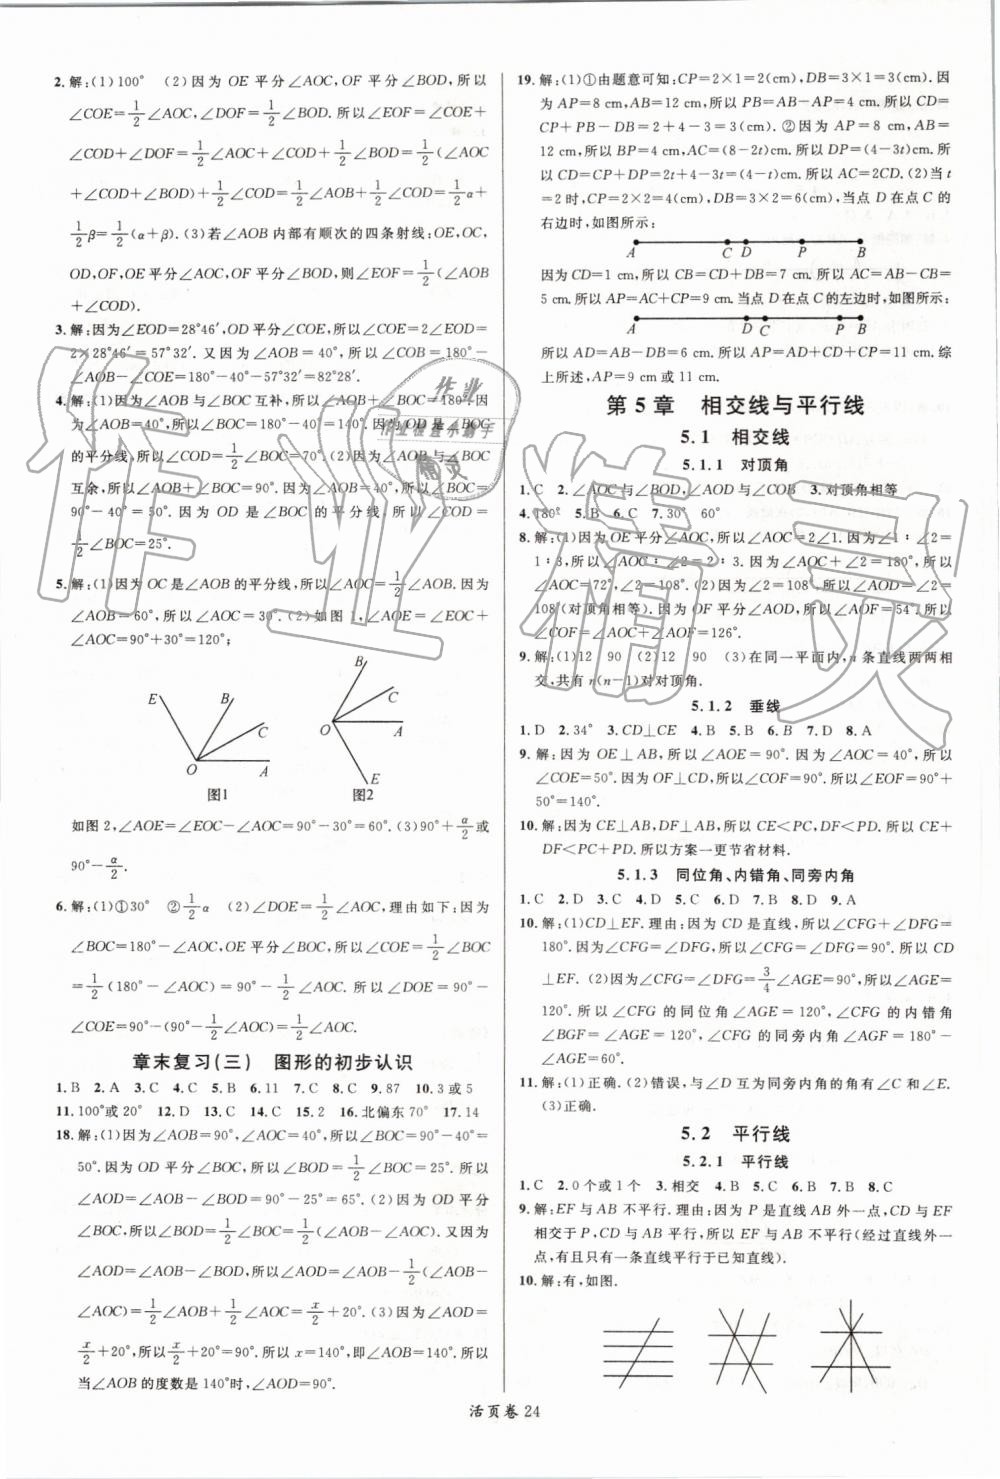 2. 解:(1)100°　(2)因为 OE 平分∠AOC,OF 平分∠BOD,所以
∠COE=1/2∠AOC,∠DOF=1/2∠BOD. 所以∠EOF=∠COE+
∠COD+∠DOF=1/2∠AOC+∠COD+1/2∠BOD=1/2(∠AOC
+∠COD+∠BOD)+1/2∠COD=1/2∠AOB+1/2∠COD=1/2α+
1/2β=1/2(α+β). (3)若∠AOB 内部有顺次的四条射线:OE,OC,
OD,OF,OE 平分∠AOC,OF 平分∠BOD,则∠EOF=1/2(∠AOB
+∠COD).
3. 解:因为∠EOD=28°46′,OD 平分∠COE,所以∠COE=2∠EOD=
2×28°46′=57°32′. 又因为∠AOB=40°,所以∠COB=180°-
∠AOB-∠COE=180°-40°-57°32′=82°28′.
4. 解:(1)因为∠AOB 与∠BOC 互补,所以∠AOB+∠BOC=180°.因
为∠AOB=40°,所以∠BOC=180°-40°=140°.因为 OD 是∠BOC
的平分线,所以∠COD=1/2∠BOC=70°. (2)因为∠AOB 与∠BOC
互余,所以∠AOB+∠BOC=90°. 因为∠AOB=40°,所以∠BOC=
90°-40°=50°. 因为 OD 是∠BOC 的平分线,所以∠COD=
1/2∠BOC=25°.
5. 解:(1)因为 OC 是∠AOB 的平分线,所以∠AOC=1/2∠AOB.因为
∠AOB=60°,所以∠AOC=30°.(2)如图 1,∠AOE=∠EOC+
∠AOC=90°+30°=120°;
E B C O A
图1
B C O A E
图2
如图 2,∠AOE=∠EOC-∠AOC=90°-30°=60°. (3)90°+α/2或
90°-α/2.
6. 解:(1)①30°　②1/2α　(2)∠DOE=1/2∠AOC,理由如下:因为
∠BOC=180°-∠AOC,OE 平分∠BOC,所以∠COE=1/2∠BOC
=1/2(180°-∠AOC)=90°-1/2∠AOC. 所以∠DOE=90°-
∠COE=90°-(90°-1/2∠AOC)=1/2∠AOC.
章末复习(三)　图形的初步认识
1. B　2. A　3. C　4. C　5. B　6. 11　7. C　8. C　9. 87　10. 3 或 5
11. 100°或 20°　12. D　13. C　14. C　15. 2　16. 北偏东 70°　17. 14
18. 解:(1)因为∠AOB=90°,∠AOC=40°,所以∠BOC=90°-40°=
50°. 因为 OD 平分∠BOC,所以∠BOD=1/2∠BOC=25°. 所以
∠AOD=∠AOB-∠BOD=90°-25°=65°. (2)因为 OD 平分
∠BOC,所以∠BOD=1/2∠BOC=1/2(∠AOB-∠AOC). 又因为
∠AOD=∠AOB-∠BOD,所以∠AOD=∠AOB-1/2(∠AOB-
∠AOC)=1/2∠AOB+1/2∠AOC=x/2+20°. (3)因为∠AOD=
x/2+20°,所以x/2+20°=90°. 所以x=140°,即∠AOB=140°. 所以
当∠AOB 的度数是 140°时,∠AOD=90°.
19. 解:(1)①由题意可知:CP=2×1=2(cm),DB=3×1=3(cm). 因
为 AP=8 cm,AB=12 cm,所以 PB=AB-AP=4 cm. 所以 CD=
CP+PB-DB=2+4-3=3(cm). ②因为 AP=8 cm, AB=
12 cm,所以 BP=4 cm,AC=(8-2t)cm. 所以 DP=(4-3t)cm. 所
以 CD=CP+DP=2t+4-3t=(4-t)cm. 所以 AC=2CD. (2)当 t
=2 时,CP=2×2=4(cm),DB=3×2=6(cm),当点 D 在点 C 的
右边时,如图所示:
A C D P B
因为 CD=1 cm,所以 CB=CD+DB=7 cm. 所以 AC=AB-CB=
5 cm. 所以 AP=AC+CP=9 cm. 当点 D 在点 C 的左边时,如图所示:
A D C P B
所以 AD=AB-DB=6 cm. 所以 AP=AD+CD+CP=11 cm. 综
上所述,AP=9 cm 或 11 cm.
第 5 章　相交线与平行线
5.1　相交线
5.1.1　对顶角
1. C　2. ∠AOC 与∠BOD,∠AOD 与∠COB　3. 对顶角相等
4. 180°　5. B　6. C　7. 30°　60°
8. 解:(1)因为 OE 平分∠AOC,所以∠AOC=2∠1. 因为∠1∶∠2=
1∶3,所以∠AOC∶∠2=2∶3. 因为∠AOC+∠2=180°,所以
∠AOC=72°,∠2=108°. (2)因为∠2=108°,所以∠AOD=∠2=
108°(对顶角相等). 因为 OF 平分∠AOD,所以∠AOF=54°. 所以
∠COF=∠AOC+∠AOF=126°.
9. 解:(1)12　90　(2)12　90　(3)在同一平面内,n 条直线两两相
交,共有 n(n-1)对对顶角.
5.1.2　垂线
1. D　2. 34°　3. CD⊥CE　4. B　5. B　6. B　7. D　8. A
9. 解:因为 OE⊥AB,所以∠AOE=90°. 因为∠AOC=40°,所以
∠COE=50°. 因为 OF⊥CD,所以∠COF=90°. 所以∠EOF=90°+
50°=140°.
10. 解:因为 CE⊥AB,DF⊥AB,所以 CE<PC,DF<PD. 所以 CE+
DF<PC+PD. 所以方案一更节省材料.
5.1.3　同位角、内错角、同旁内角
1. C　2. D　3. C　4. D　5. C　6. D　7. B　8. D　9. A
10. 解:(1)CD⊥EF. 理由:因为 CD 是直线,所以∠CFG+∠DFG=
180°. 因为∠CFG=∠DFG,所以∠CFG=∠DFG=90°. 所以 CD
⊥EF. (2)因为∠CFG=∠DFG=3/4∠AGE=90°,所以∠AGE=
120°. 所以∠CFG 的同位角∠AGE=120°,∠CFG 的内错角
∠BGF=∠AGE=120°,∠CFG 的同旁内角∠AGF=180°-
∠AGE=60°.
11. 解:(1)正确. (2)错误,与∠D 互为同旁内角的角有∠C 和∠E.
(3)正确.
5.2　平行线
5.2.1　平行线
1. C　2. 0 个或 1 个　3. 相交　4. B　5. C　6. B　7. B　8. C
9. 解:EF 与 AB 不平行. 理由:因为 P 是直线 AB 外一点,CD 与 EF
相交于 P,CD 与 AB 平行,所以 EF 与 AB 不平行(经过直线外一
点,有且只有一条直线平行于已知直线).
10. 解:有,如图.
活页卷 24
作业精灵
作业
作业检查小助手
精灵